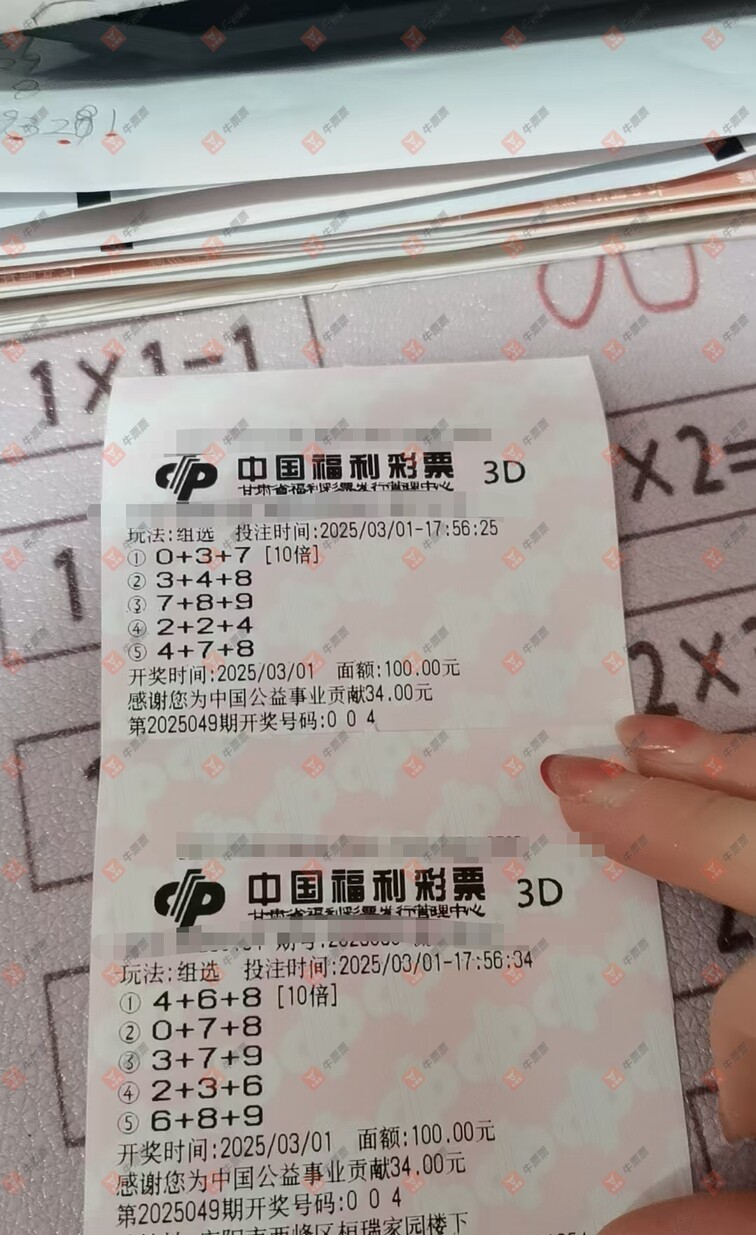 1×1=1
×2=
中国福利彩票 3D
甘肃省福利彩票发行管理中心
玩法:组选 投注时间:2025/03/01-17:56:25
① 0+3+7 [10倍]
② 3+4+8
③ 7+8+9
④ 2+2+4
⑤ 4+7+8
开奖时间:2025/03/01 面额:100.00元
感谢您为中国公益事业贡献34.00元
第2025049期开奖号码:0 0 4
中国福利彩票 3D
甘肃省福利彩票发行管理中心
玩法:组选 投注时间:2025/03/01-17:56:34
① 4+6+8 [10倍]
② 0+7+8
③ 3+7+9
④ 2+3+6
⑤ 6+8+9
开奖时间:2025/03/01 面额:100.00元
感谢您为中国公益事业贡献34.00元
第2025049期开奖号码:0 0 4
庆阳市西峰区桓瑞家园楼下
牛票票